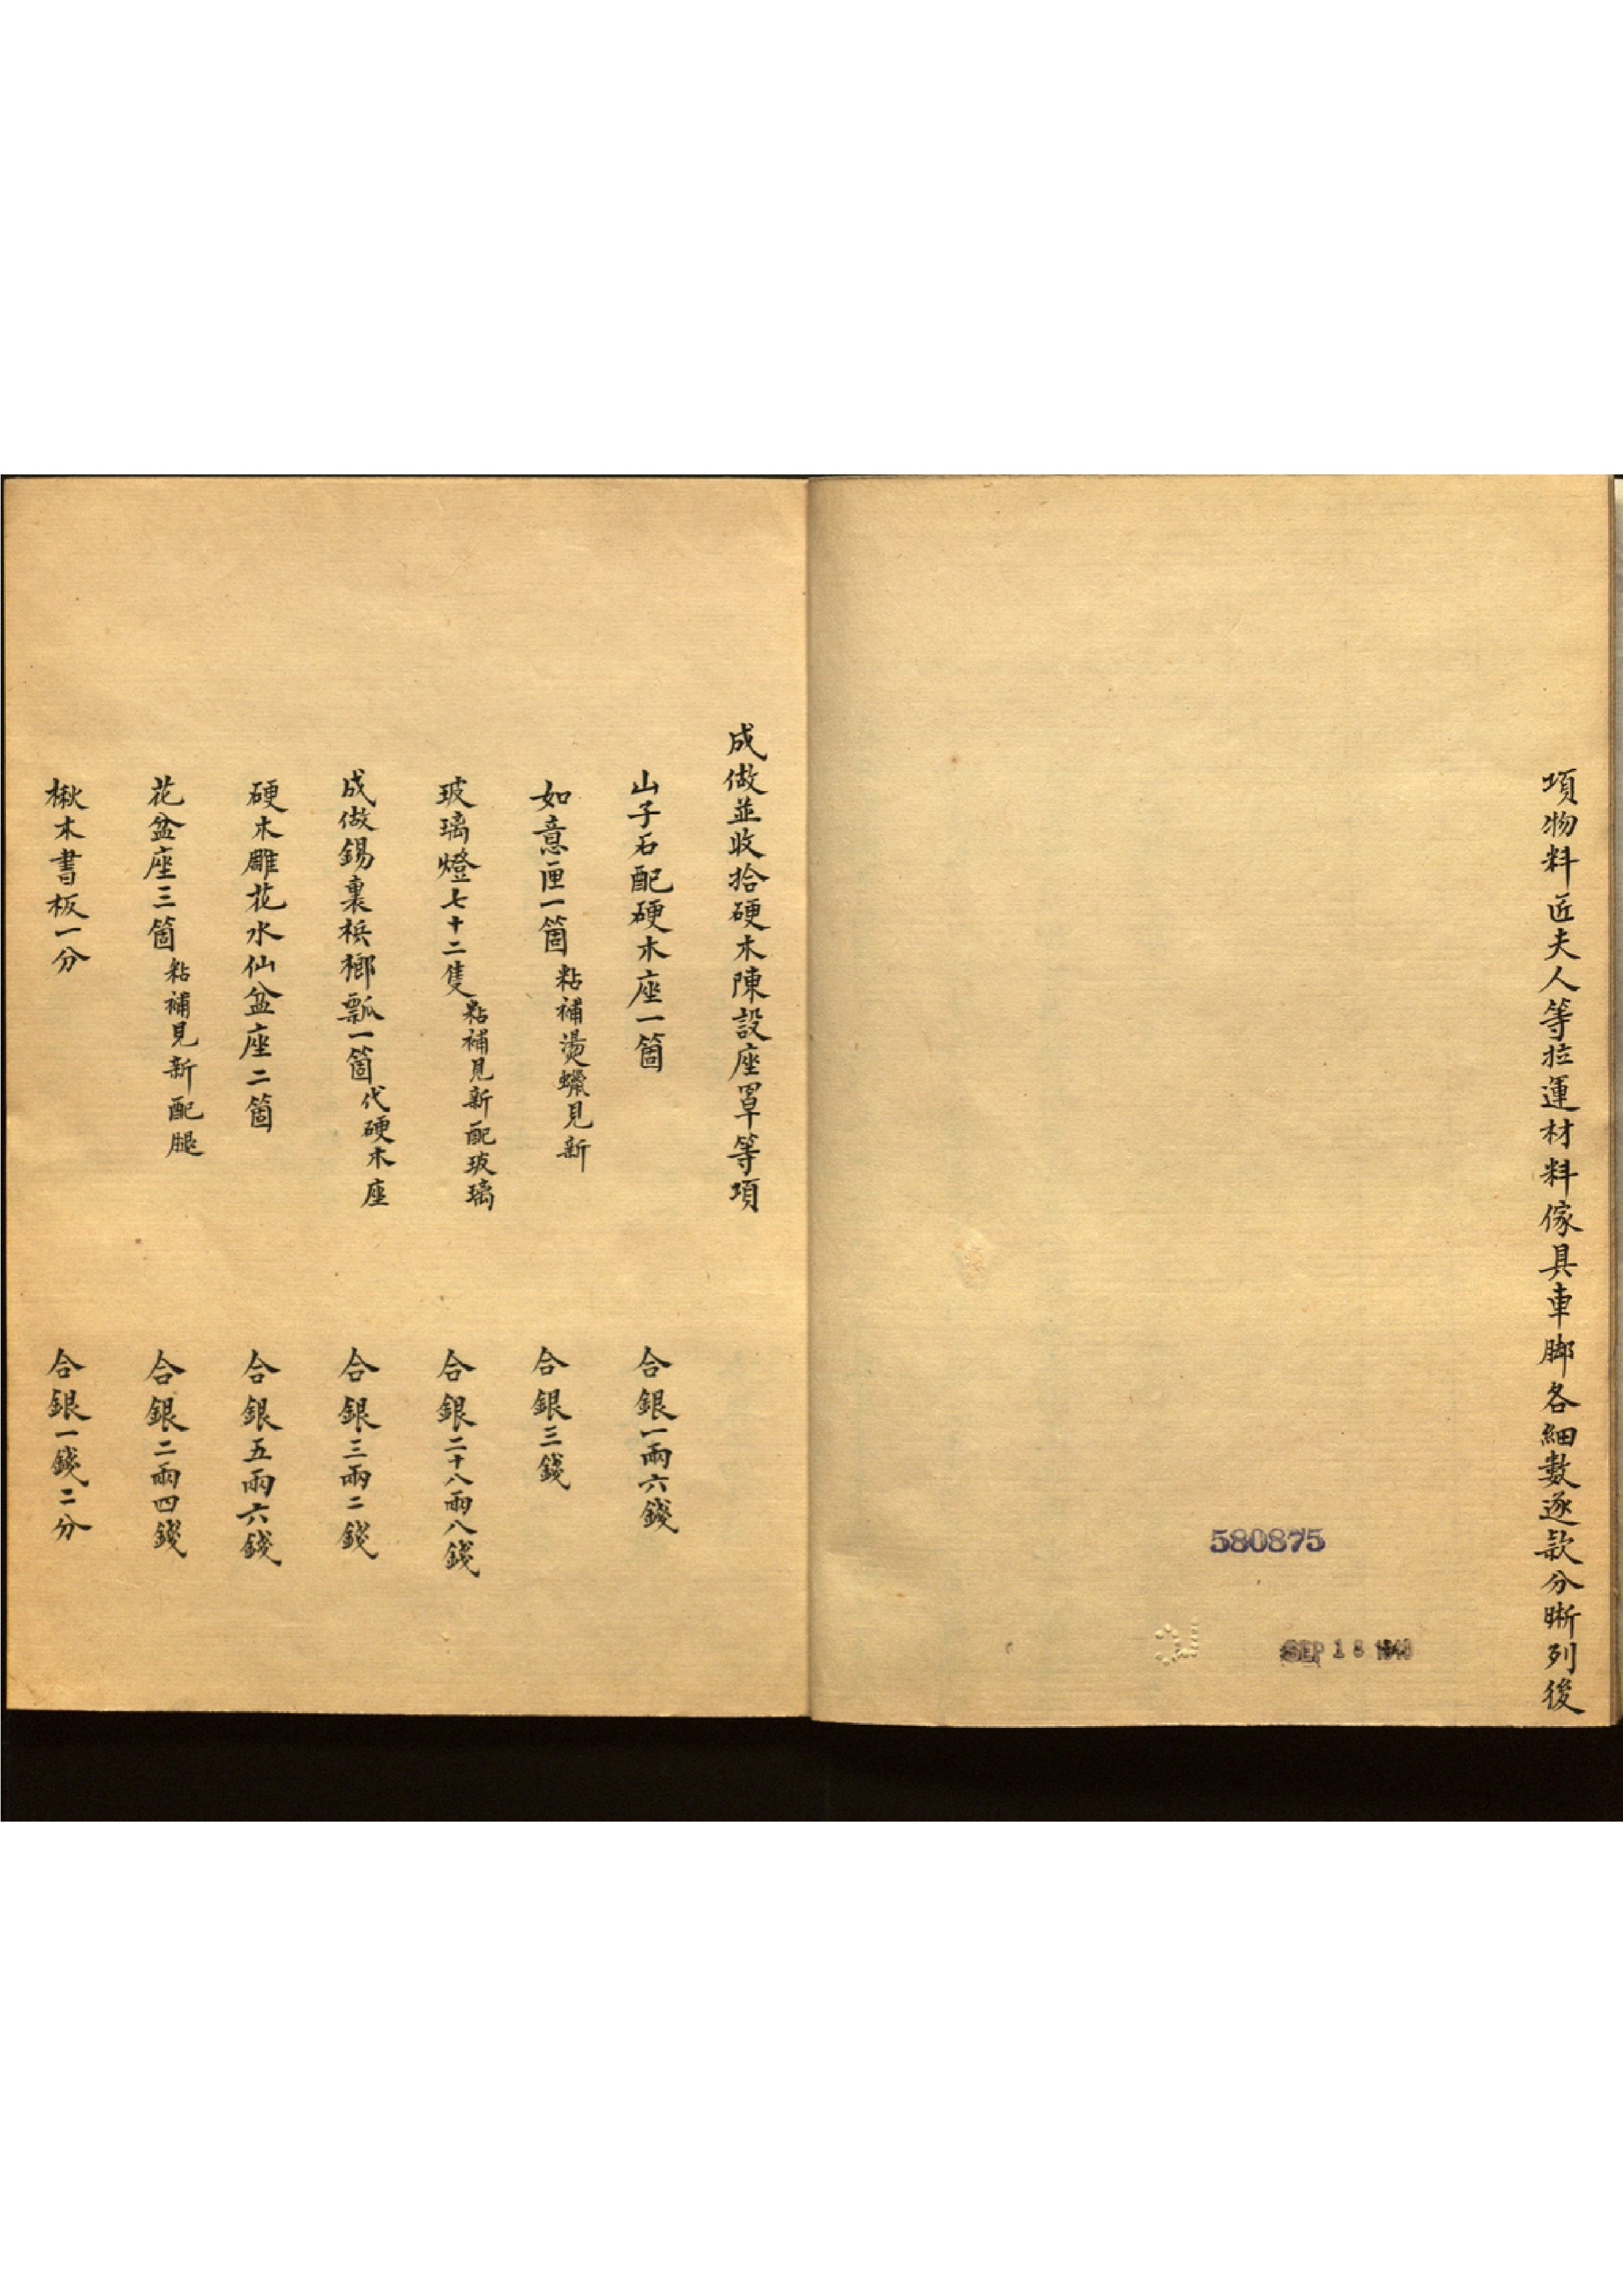 項物料匠夫人等拉運材料傢具車脚各細數逐款分晰列後
580875
SEP 18 1940
成做並收拾硬木陳設座罩等項
山子石配硬木座一箇 合銀一兩六錢
如意匣一箇粘補燙蠟見新 合銀三錢
玻璃燈七十二隻粘補見新配玻璃 合銀二十八兩八錢
成做錫裏梹榔瓢一箇代硬木座 合銀三兩二錢
硬木雕花水仙盆座二箇 合銀五兩六錢
花盆座三箇粘補見新配腿 合銀二兩四錢
楸木書板一分 合銀一錢二分